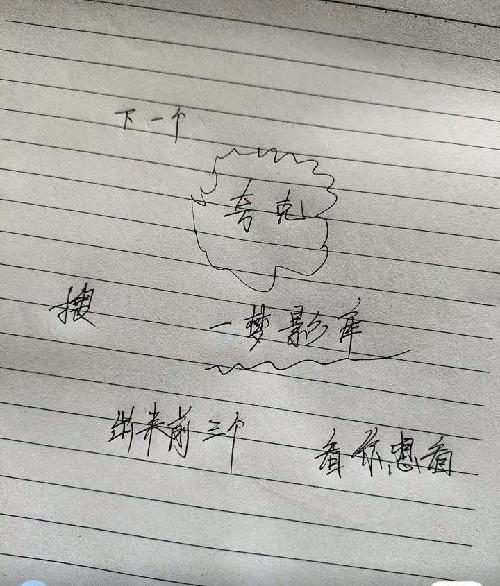 下一个
夸克
搜 一梦影库
出来前三个 看你想看